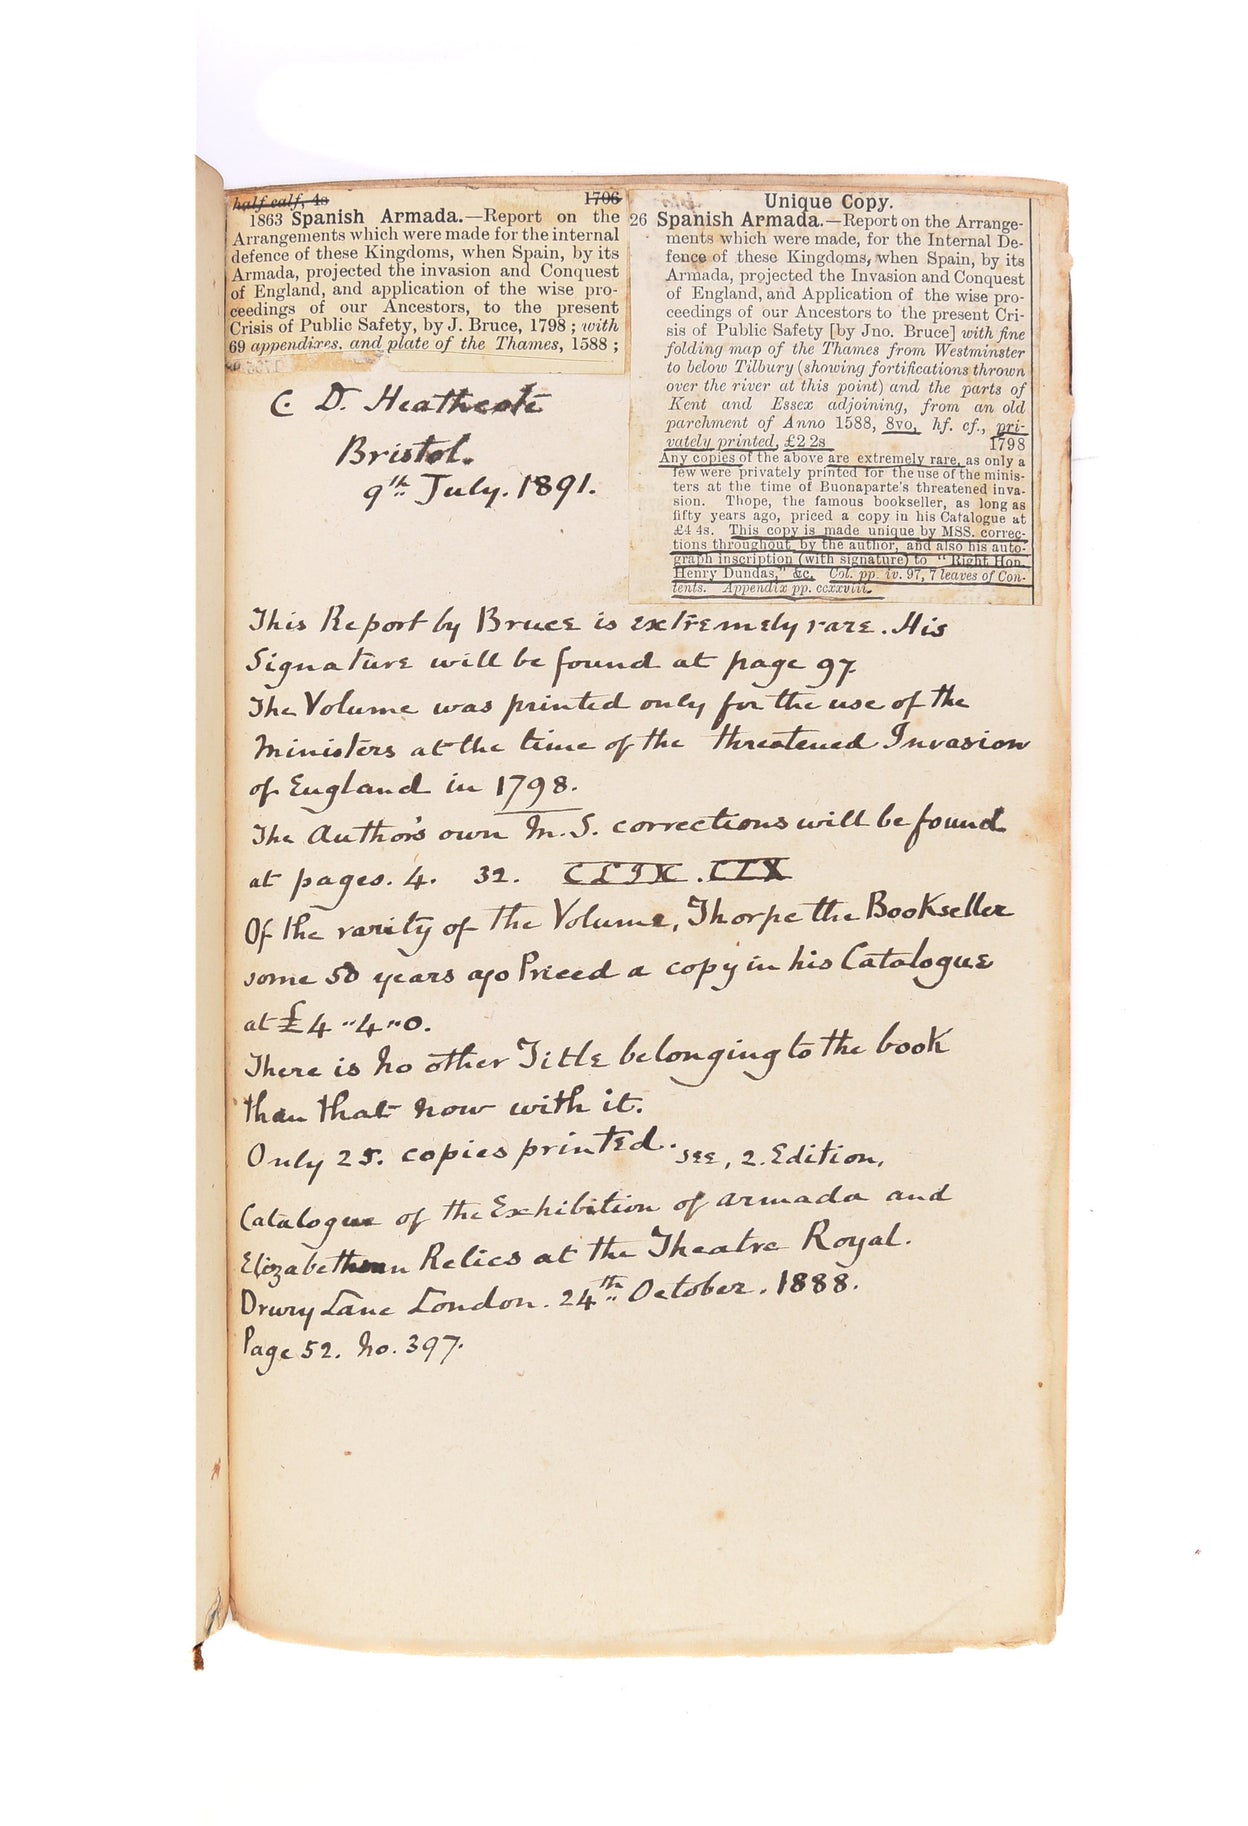 half calf, 4s 1706
1863 Spanish Armada.—Report on the
Arrangements which were made for the internal
defence of these Kingdoms, when Spain, by its
Armada, projected the invasion and Conquest
of England, and application of the wise pro-
ceedings of our Ancestors, to the present
Crisis of Public Safety, by J. Bruce, 1798 ; with
69 appendixes, and plate of the Thames, 1588 ;
Unique Copy.
26 Spanish Armada.—Report on the Arrange-
ments which were made, for the Internal De-
fence of these Kingdoms, when Spain, by its
Armada, projected the Invasion and Conquest
of England, and Application of the wise pro-
ceedings of our Ancestors to the present Cri-
sis of Public Safety [by Jno. Bruce] with fine
folding map of the Thames from Westminster
to below Tilbury (showing fortifications thrown
over the river at this point) and the parts of
Kent and Essex adjoining, from an old
parchment of Anno 1588, 8vo, hf. cf., pri-
vately printed, £2 2s 1798
Any copies of the above are extremely rare, as only a
few were privately printed for the use of the minis-
ters at the time of Buonaparte's threatened inva-
sion. Thope, the famous bookseller, as long as
fifty years ago, priced a copy in his Catalogue at
£4 4s. This copy is made unique by MSS. correc-
tions throughout by the author, and also his auto-
graph inscription (with signature) to "Right Hon.
Henry Dundas," &c. Col. pp. iv. 97, 7 leaves of Con-
tents. Appendix pp. ccxxviii.
C. D. Heathcote
Bristol.
9th July. 1891.
This Report by Bruce is extremely rare. His
Signature will be found at page 97.
The Volume was printed only for the use of the
Ministers at the time of the threatened Invasion
of England in 1798.
The Author's own M.S. corrections will be found
at pages. 4. 32. CLIX. CLX
Of the rarity of the Volume, Thorpe the Bookseller
some 50 years ago Priced a copy in his Catalogue
at £4 "4"0.
There is no other Title belonging to the book
than that now with it.
Only 25. copies printed. see, 2. Edition.
Catalogue of the Exhibition of Armada and
Elizabethan Relics at the Theatre Royal.
Drury Lane London. 24th October. 1888.
Page 52. No. 397.